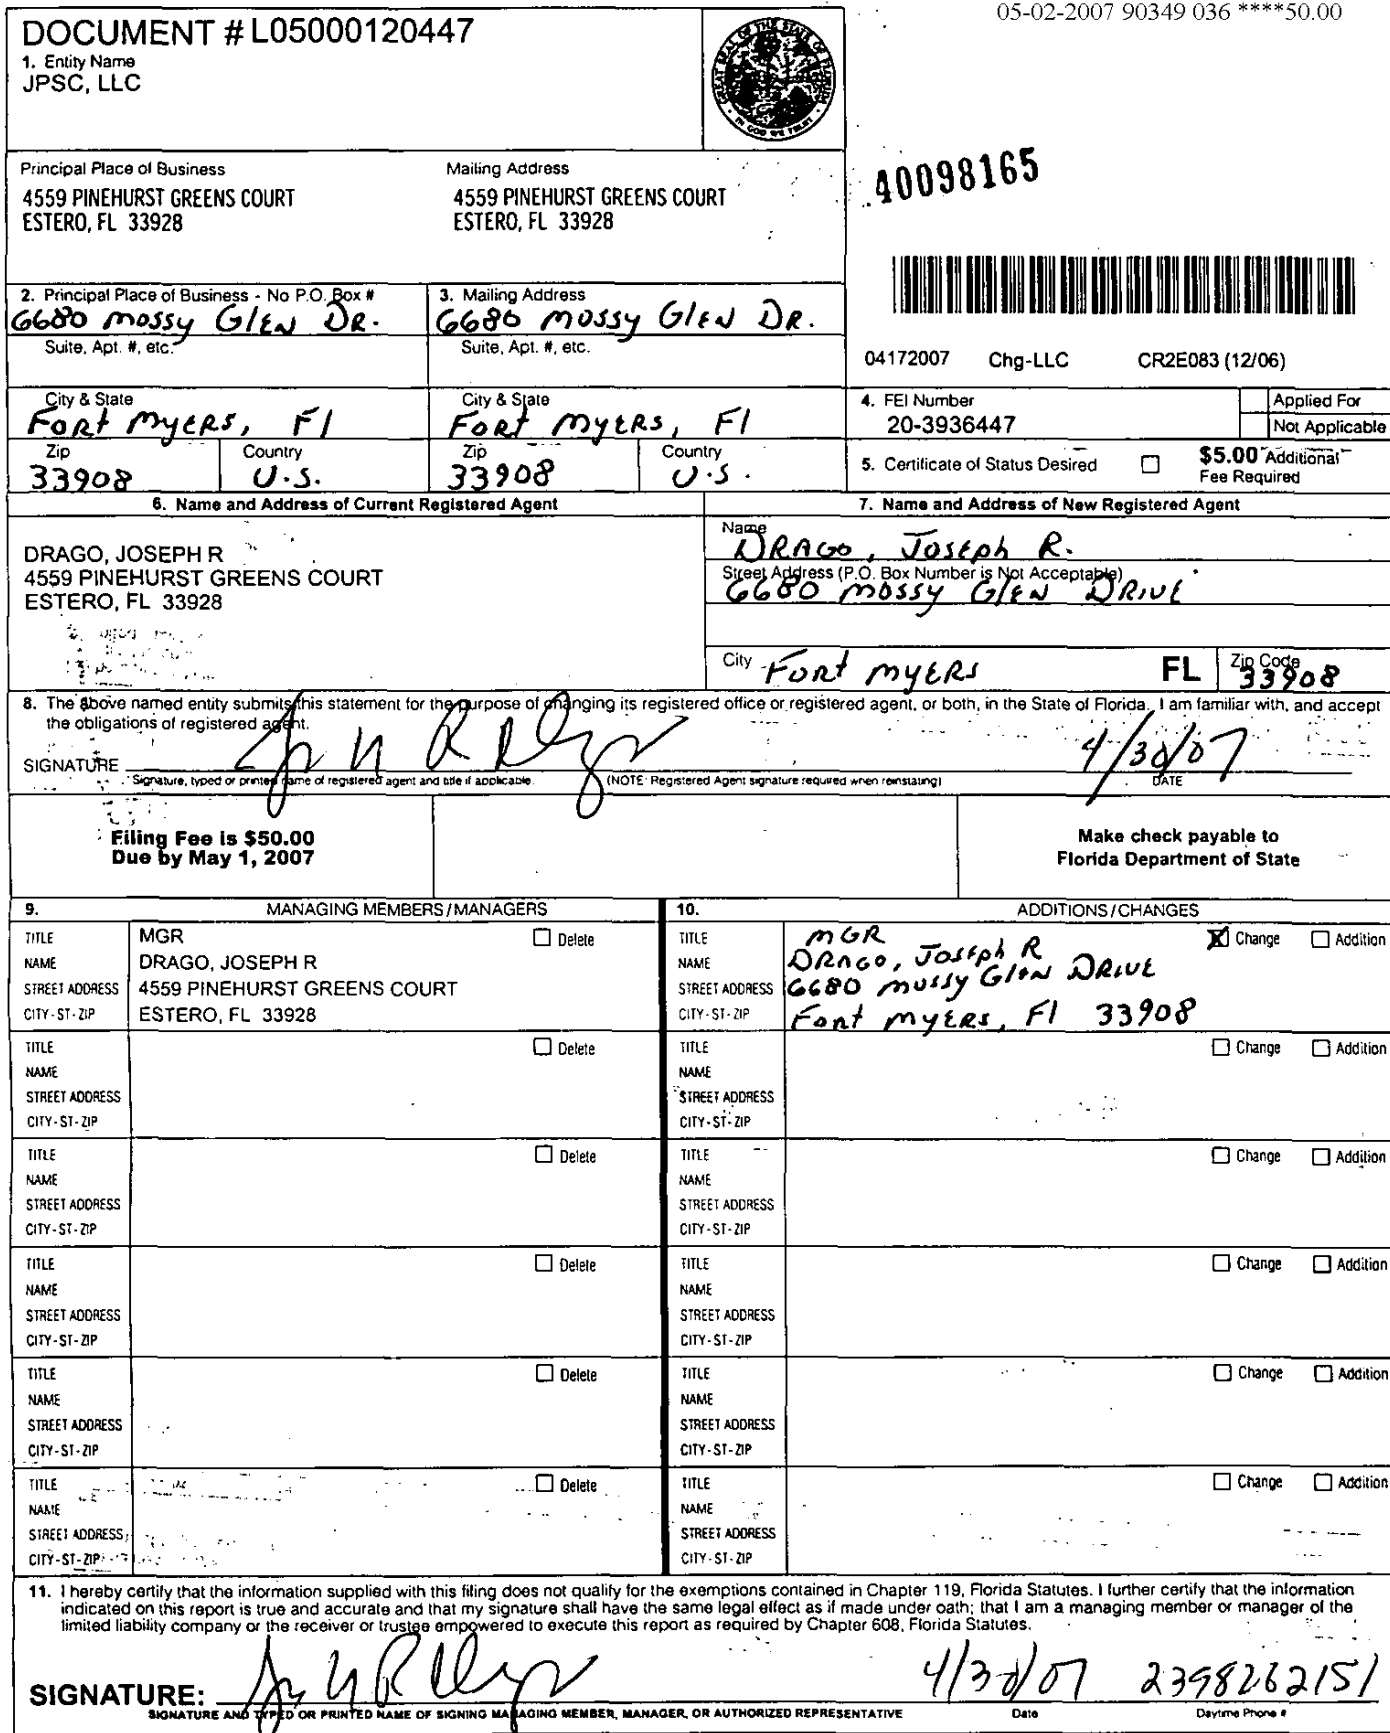 05-02-2007 90349 036 ****50.00
DOCUMENT # L05000120447
1. Entity Name
JPSC, LLC
GREAT SEAL OF THE STATE OF FLORIDA
IN GOD WE TRUST
Principal Place of Business
4559 PINEHURST GREENS COURT
ESTERO, FL 33928
Mailing Address
4559 PINEHURST GREENS COURT
ESTERO, FL 33928
40098165
2. Principal Place of Business - No P.O. Box #
6680 Mossy Glen Dr.
Suite, Apt. #, etc.
3. Mailing Address
6680 Mossy Glen Dr.
Suite, Apt. #, etc.
04172007 Chg-LLC CR2E083 (12/06)
City & State
Fort Myers, Fl
City & State
Fort Myers, Fl
Zip
33908
Country
U.S.
Zip
33908
Country
U.S.
4. FEI Number
20-3936447
Applied For
Not Applicable
5. Certificate of Status Desired
$5.00 Additional
Fee Required
6. Name and Address of Current Registered Agent
DRAGO, JOSEPH R
4559 PINEHURST GREENS COURT
ESTERO, FL 33928
7. Name and Address of New Registered Agent
Name
Drago, Joseph R.
Street Address (P.O. Box Number is Not Acceptable)
6680 Mossy Glen Drive
City Fort Myers FL Zip Code 33908
8. The above named entity submits this statement for the purpose of changing its registered office or registered agent, or both, in the State of Florida. I am familiar with, and accept
the obligations of registered agent.
SIGNATURE
4/30/07
Signature, typed or printed name of registered agent and title if applicable. (NOTE: Registered Agent signature required when reinstating) DATE
Filing Fee is $50.00
Due by May 1, 2007
Make check payable to
Florida Department of State
9. MANAGING MEMBERS/MANAGERS
10. ADDITIONS/CHANGES
TITLE MGR Delete
NAME DRAGO, JOSEPH R
STREET ADDRESS 4559 PINEHURST GREENS COURT
CITY-ST-ZIP ESTERO, FL 33928
TITLE MGR Change Addition
NAME Drago, Joseph R
STREET ADDRESS 6680 Mossy Glen Drive
CITY-ST-ZIP Fort Myers, Fl 33908
TITLE Delete
NAME
STREET ADDRESS
CITY-ST-ZIP
TITLE Change Addition
NAME
STREET ADDRESS
CITY-ST-ZIP
TITLE Delete
NAME
STREET ADDRESS
CITY-ST-ZIP
TITLE Change Addition
NAME
STREET ADDRESS
CITY-ST-ZIP
TITLE Delete
NAME
STREET ADDRESS
CITY-ST-ZIP
TITLE Change Addition
NAME
STREET ADDRESS
CITY-ST-ZIP
TITLE Delete
NAME
STREET ADDRESS
CITY-ST-ZIP
TITLE Change Addition
NAME
STREET ADDRESS
CITY-ST-ZIP
TITLE Delete
NAME
STREET ADDRESS
CITY-ST-ZIP
TITLE Change Addition
NAME
STREET ADDRESS
CITY-ST-ZIP
11. I hereby certify that the information supplied with this filing does not qualify for the exemptions contained in Chapter 119, Florida Statutes. I further certify that the information
indicated on this report is true and accurate and that my signature shall have the same legal effect as if made under oath; that I am a managing member or manager of the
limited liability company or the receiver or trustee empowered to execute this report as required by Chapter 608, Florida Statutes.
SIGNATURE: 4/30/07 2398262151
SIGNATURE AND TYPED OR PRINTED NAME OF SIGNING MANAGING MEMBER, MANAGER, OR AUTHORIZED REPRESENTATIVE Date Daytime Phone #